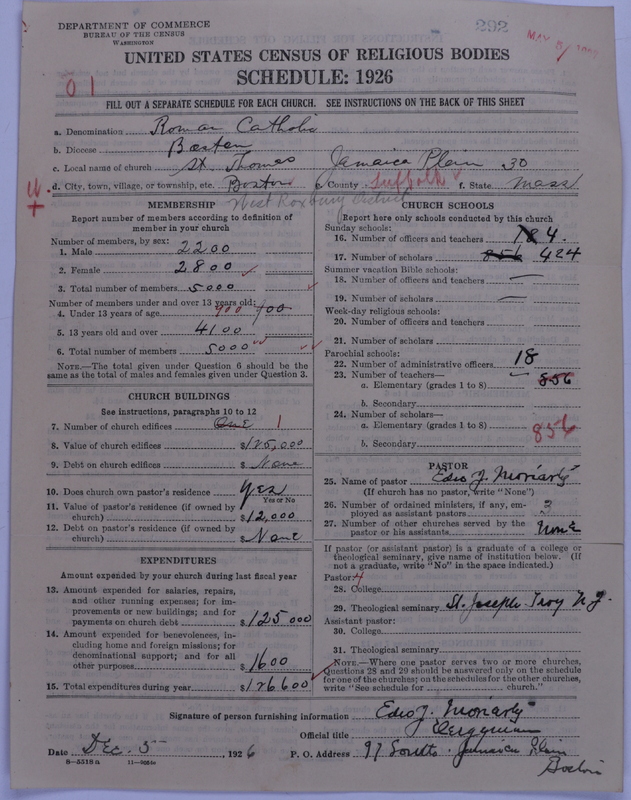 DEPARTMENT OF COMMERCE
BUREAU OF THE CENSUS
WASHINGTON
292
UNITED STATES CENSUS OF RELIGIOUS BODIES
SCHEDULE: 1926
01
FILL OUT A SEPARATE SCHEDULE FOR EACH CHURCH. SEE INSTRUCTIONS ON THE BACK OF THIS SHEET
a. Denomination Roman Catholic
b. Diocese Boston
c. Local name of church St. Thomas Jamaica Plain 30
d. City, town, village, or township, etc. Boston e. County Suffolk f. State Mass
West Roxbury District
MEMBERSHIP
Report number of members according to definition of
member in your church
Number of members, by sex:
1. Male 2200
2. Female 2800
3. Total number of members 5000
Number of members under and over 13 years old:
4. Under 13 years of age 900 900
5. 13 years old and over 4100
6. Total number of members 5000
NOTE.—The total given under Question 6 should be
the same as the total of males and females given under Question 3.
CHURCH BUILDINGS
See instructions, paragraphs 10 to 12
7. Number of church edifices One 1
8. Value of church edifices $125,000
9. Debt on church edifices $ None
10. Does church own pastor's residence Yes
Yes or No
11. Value of pastor's residence (if owned by
church) $12,000
12. Debt on pastor's residence (if owned by
church) $ None
EXPENDITURES
Amount expended by your church during last fiscal year
13. Amount expended for salaries, repairs,
and other running expenses; for im-
provements or new buildings; and for
payments on church debt $125000
14. Amount expended for benevolences, in-
cluding home and foreign missions; for
denominational support; and for all
other purposes $1600
15. Total expenditures during year $126600
CHURCH SCHOOLS
Report here only schools conducted by this church
Sunday schools:
16. Number of officers and teachers 18 4.
17. Number of scholars 856 424
Summer vacation Bible schools:
18. Number of officers and teachers —
19. Number of scholars —
Week-day religious schools:
20. Number of officers and teachers
21. Number of scholars
Parochial schools:
22. Number of administrative officers 18
23. Number of teachers—
a. Elementary (grades 1 to 8) 856
b. Secondary
24. Number of scholars—
a. Elementary (grades 1 to 8) 856
b. Secondary
PASTOR
25. Name of pastor Edw J. Moriarty
(If church has no pastor, write "None")
26. Number of ordained ministers, if any, em-
ployed as assistant pastors 3
27. Number of other churches served by the
pastor or his assistants None
If pastor (or assistant pastor) is a graduate of a college or
theological seminary, give name of institution below. (If
not a graduate, write "No" in the space indicated.)
Pastor:
28. College
29. Theological seminary St. Joseph Troy N.Y.
Assistant pastor:
30. College
31. Theological seminary
NOTE.—Where one pastor serves two or more churches,
Questions 28 and 29 should be answered only on the schedule
for one of the churches; on the schedules for the other churches,
write "See schedule for church."
Signature of person furnishing information Edw J. Moriarty
Official title Clergyman
Date Dec. 5, 1926 P. O. Address 97 South. Jamaica Plain
Boston
8—5518a 11—9054